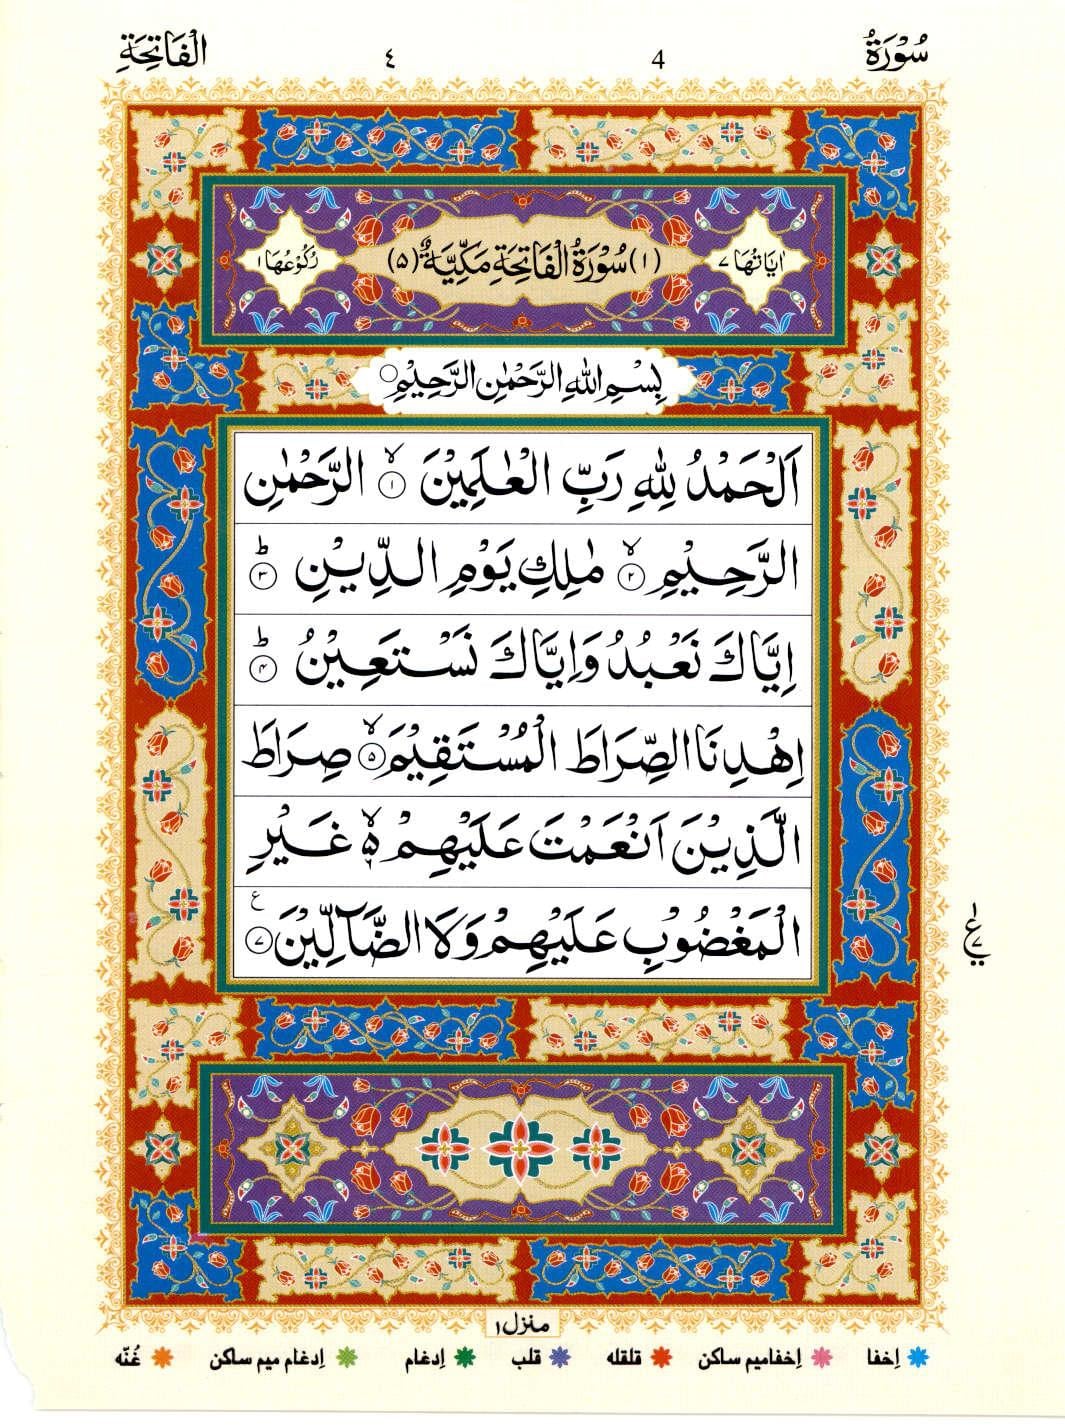 سُوْرَةُ 4 ٤ الْفَاتِحَةِ
اٰيَاتُهَا ٧ (١) سُوْرَةُ الْفَاتِحَةِ مَكِّيَّةٌ (٥) رُكُوْعُهَا ١
بِسْمِ اللّٰهِ الرَّحْمٰنِ الرَّحِيْمِ
اَلْحَمْدُ لِلّٰهِ رَبِّ الْعٰلَمِيْنَ ۙ ١ الرَّحْمٰنِ
الرَّحِيْمِ ۙ ٢ مٰلِكِ يَوْمِ الدِّيْنِ ؕ ٣
اِيَّاكَ نَعْبُدُ وَاِيَّاكَ نَسْتَعِيْنُ ؕ ۴
اِهْدِنَا الصِّرَاطَ الْمُسْتَقِيْمَ ۙ ۵ صِرَاطَ
الَّذِيْنَ اَنْعَمْتَ عَلَيْهِمْ ۙ۬ ۶ غَيْرِ
الْمَغْضُوْبِ عَلَيْهِمْ وَلَا الضَّآلِّيْنَ ٧ ع
١ ع ٧
منزل ١
اِخفا اِخفامیم ساکن قلقله قلب اِدغام اِدغام میم ساکن غُنّه